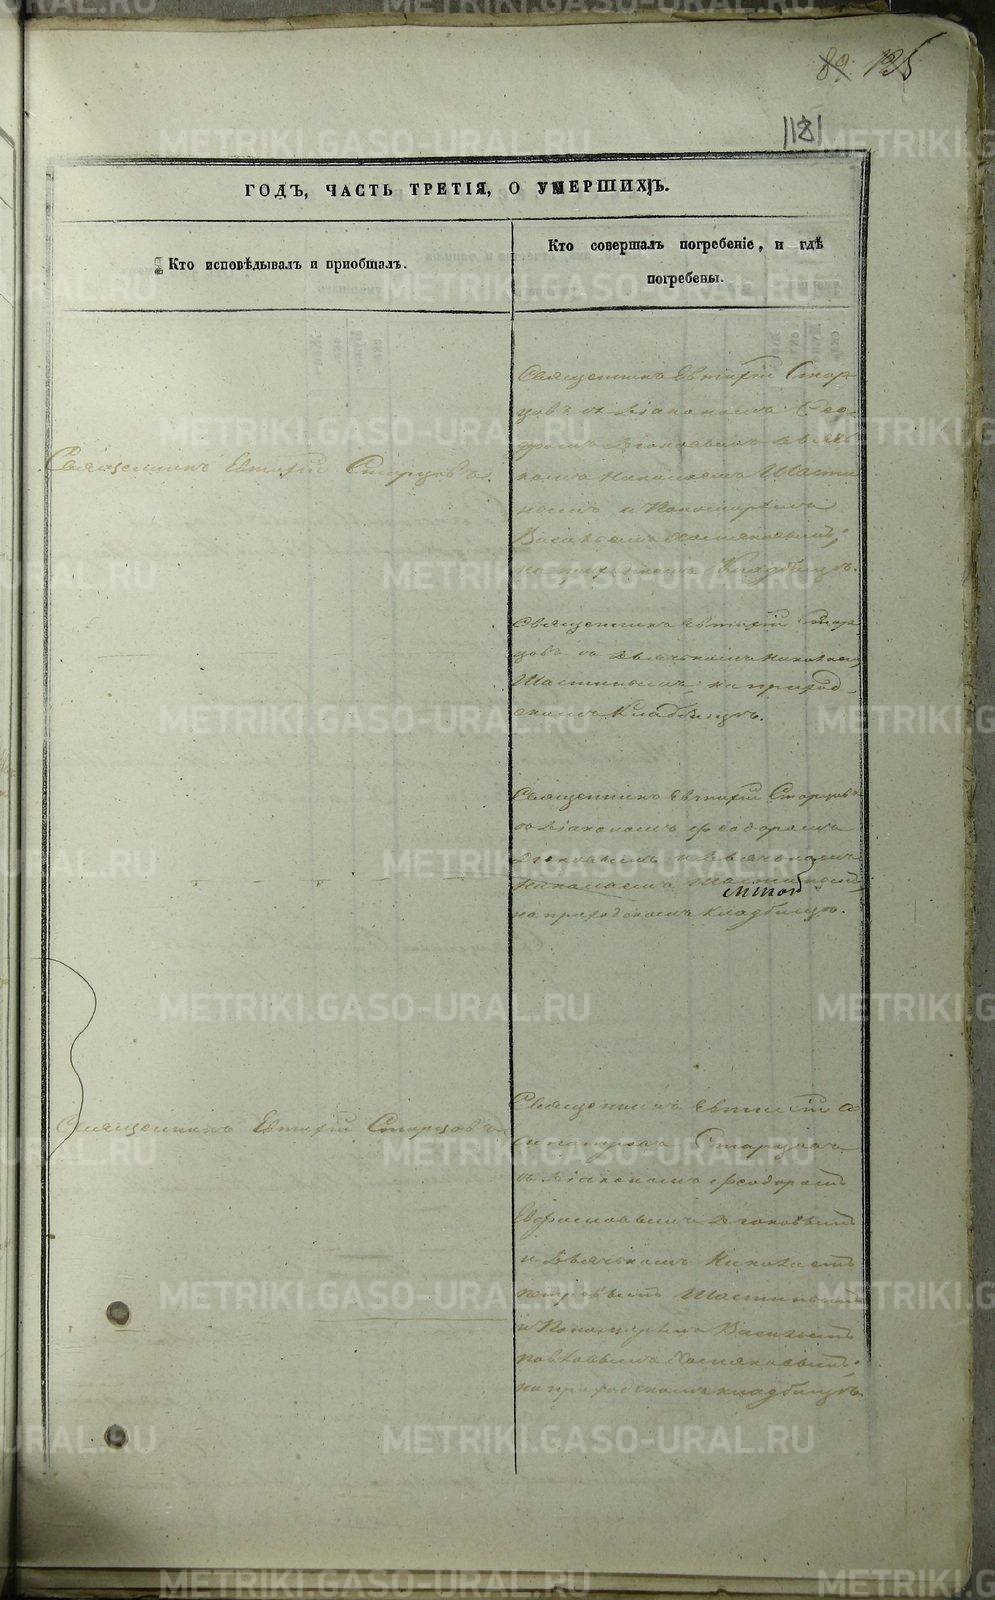 89. 135
1181
ГОДЪ, ЧАСТЬ ТРЕТІЯ, О УМЕРШИХЪ.
Кто исповѣдывалъ и пріобщалъ.
Кто совершалъ погребеніе, и гдѣ
погребены.
Священникъ Евтихій Стар-
цовъ съ Діакономъ Ѳео-
доромъ
Николаемъ Шасти
нымъ и Пономаремъ
Васильемъ Хомяковымъ,
на приходскомъ Кладбищѣ.
Священникъ Евтихій Старцовъ.
Священникъ Евтихій Стар-
цовъ съ Дьячкомъ Николаемъ
Шастинымъ на приход-
скомъ Кладбищѣ.
Священникъ Евтихій Старцовъ
съ Діакономъ Ѳеодоромъ
и Дьячкомъ
Николаемъ Шастинымъ
на приходскомъ кладбищѣ.
Священникъ Евтихій Старцовъ
Священникъ Евтихій
Старцовъ
съ Діакономъ Ѳеодоромъ
и Дьячкомъ Николаемъ
Петровымъ Шастинымъ
и Пономаремъ Васильемъ
Хомяковымъ
на приходскомъ кладбищѣ.
METRIKI.GASO-URAL.RU